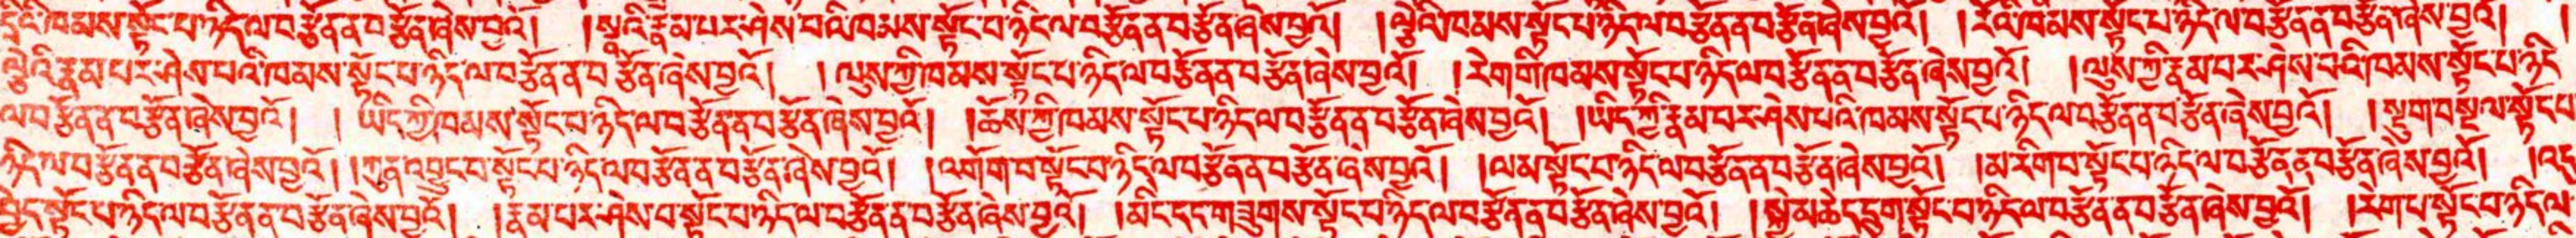 དྲིའི་ཁམས་སྟོང་པ་ཉིད་ལ་བརྩོན་ན་བརྩོན་ཞེས་བྱའོ། །སྣའི་རྣམ་པར་ཤེས་པའི་ཁམས་སྟོང་པ་ཉིད་ལ་བརྩོན་ན་བརྩོན་ཞེས་བྱའོ། །ལྕེའི་ཁམས་སྟོང་པ་ཉིད་ལ་བརྩོན་ན་བརྩོན་ཞེས་བྱའོ། །རོའི་ཁམས་སྟོང་པ་ཉིད་ལ་བརྩོན་ན་བརྩོན་ཞེས་བྱའོ། །
ལྕེའི་རྣམ་པར་ཤེས་པའི་ཁམས་སྟོང་པ་ཉིད་ལ་བརྩོན་ན་བརྩོན་ཞེས་བྱའོ། །ལུས་ཀྱི་ཁམས་སྟོང་པ་ཉིད་ལ་བརྩོན་ན་བརྩོན་ཞེས་བྱའོ། །རེག་གི་ཁམས་སྟོང་པ་ཉིད་ལ་བརྩོན་ན་བརྩོན་ཞེས་བྱའོ། །ལུས་ཀྱི་རྣམ་པར་ཤེས་པའི་ཁམས་སྟོང་པ་ཉིད་
ལ་བརྩོན་ན་བརྩོན་ཞེས་བྱའོ། །ཡིད་ཀྱི་ཁམས་སྟོང་པ་ཉིད་ལ་བརྩོན་ན་བརྩོན་ཞེས་བྱའོ། །ཆོས་ཀྱི་ཁམས་སྟོང་པ་ཉིད་ལ་བརྩོན་ན་བརྩོན་ཞེས་བྱའོ། །ཡིད་ཀྱི་རྣམ་པར་ཤེས་པའི་ཁམས་སྟོང་པ་ཉིད་ལ་བརྩོན་ན་བརྩོན་ཞེས་བྱའོ། །སྡུག་བསྔལ་སྟོང་པ་
ཉིད་ལ་བརྩོན་ན་བརྩོན་ཞེས་བྱའོ། །ཀུན་འབྱུང་བ་སྟོང་པ་ཉིད་ལ་བརྩོན་ན་བརྩོན་ཞེས་བྱའོ། །འགོག་པ་སྟོང་པ་ཉིད་ལ་བརྩོན་ན་བརྩོན་ཞེས་བྱའོ། །ལམ་སྟོང་པ་ཉིད་ལ་བརྩོན་ན་བརྩོན་ཞེས་བྱའོ། །མ་རིག་པ་སྟོང་པ་ཉིད་ལ་བརྩོན་ན་བརྩོན་ཞེས་བྱའོ། །འདུ་
བྱེད་སྟོང་པ་ཉིད་ལ་བརྩོན་ན་བརྩོན་ཞེས་བྱའོ། །རྣམ་པར་ཤེས་པ་སྟོང་པ་ཉིད་ལ་བརྩོན་ན་བརྩོན་ཞེས་བྱའོ། །མིང་དང་གཟུགས་སྟོང་པ་ཉིད་ལ་བརྩོན་ན་བརྩོན་ཞེས་བྱའོ། །སྐྱེ་མཆེད་དྲུག་སྟོང་པ་ཉིད་ལ་བརྩོན་ན་བརྩོན་ཞེས་བྱའོ། །རེག་པ་སྟོང་པ་ཉིད་ལ་